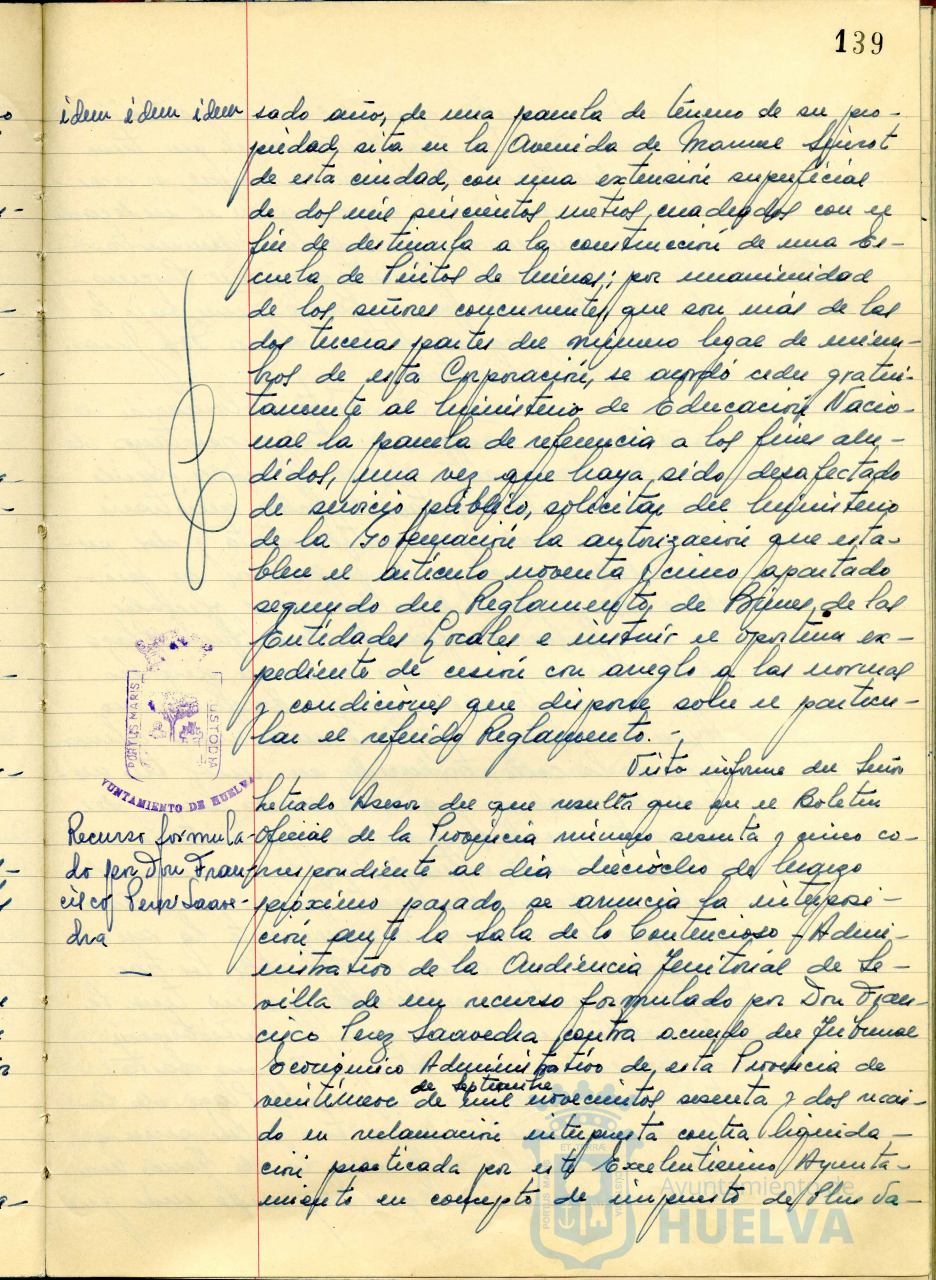 139
idem idem idem
sado año, de una parcela de terreno de su pro-
piedad, sita en la Avenida de Manuel Siurot
de esta ciudad, con una extensión superficial
de dos mil seiscientos metros cuadrados con el
fin de destinarla a la construcción de una Es-
cuela de Peritos de Minas; por unanimidad
de los señores concurrentes, que son más de las
dos terceras partes del número legal de miem-
bros de esta Corporación, se acordó ceder gratui-
tamente al Ministerio de Educación Nacio-
nal la parcela de referencia a los fines alu-
didos, una vez que haya sido desafectado
de servicio público, solicitar del Ministerio
de la Gobernación la autorización que esta-
blece el artículo noventa y cinco apartado
segundo del Reglamento de Bienes de las
Entidades Locales e instruir el oportuno ex-
pediente de cesión con arreglo a las normas
y condiciones que dispone sobre el particu-
lar el referido Reglamento.-
PORTUS MARIS
CUSTODIA
AYUNTAMIENTO DE HUELVA
Recurso formula-
do por Don Fran-
cisco Perez Saave-
dra
Visto informe del Señor
Letrado Asesor del que resulta que en el Boletin
Oficial de la Provincia número sesenta y cinco co-
rrespondiente al día dieciocho de Marzo
próximo pasado, se anuncia la interposi-
ción ante la Sala de lo Contencioso-Admi-
nistrativo de la Audiencia Territorial de Se-
villa de un recurso formulado por Don Fran-
cisco Perez Saavedra contra acuerdo del Tribunal
Económico Administrativo de esta Provincia de
veintinueve de septiembre de mil novecientos sesenta y dos recai-
do en reclamación interpuesta contra liquida-
ción practicada por este Excelentísimo Ayunta-
miento en concepto de impuesto de Plus Va-
Ayuntamiento de
HUELVA